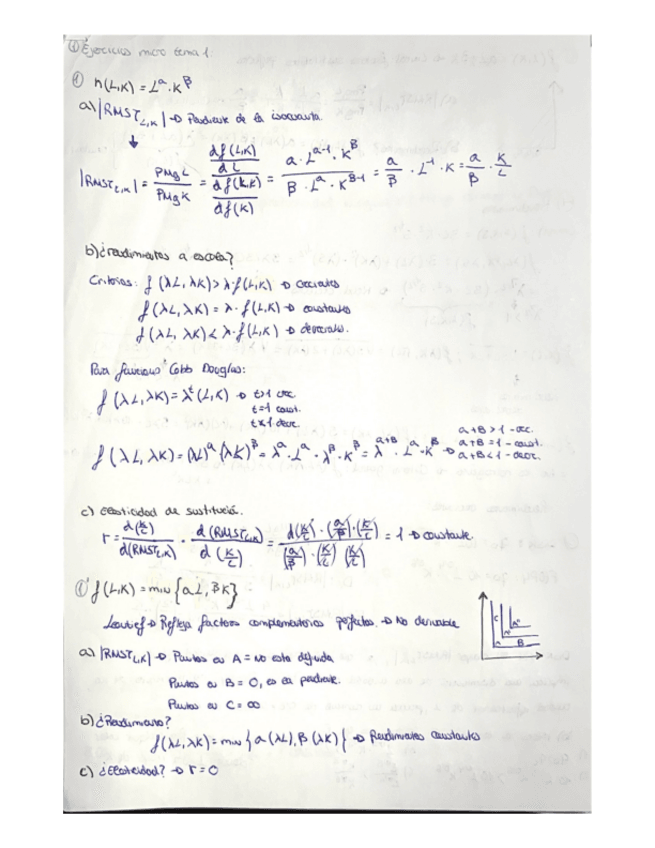 Ejercicios micro tema 1:
① n(L,K) = L^α · K^β
a) |RMST_{L,K}| → Pendiente de la isocuanta.
↓
|RMST_{L,K}| = PMgL / PMgK = (df(L,K)/dL) / (df(L,K)/df(K)) = (α·L^{α-1}·K^β) / (β·L^α·K^{β-1}) = α/β · L^{-1} · K = α/β · K/L
b) ¿rendimientos a escala?
Criterios: f(λL, λK) > λ·f(L,K) → crecientes
f(λL, λK) = λ·f(L,K) → constantes
f(λL, λK) < λ·f(L,K) → decrecientes.
Para funciones Cobb Douglas:
f(λL, λK) = λ^t (L,K) → t>1 crec.
t=1 const.
t<1 decr.
f(λL, λK) = (λL)^α (λK)^β = λ^α · L^α · λ^β · K^β = λ^{α+β} · L^α · K^β → α+β > 1 - crec.
α+β = 1 - const.
α+β < 1 - decr.
c) elasticidad de sustitución.
d(K/L) / d(RMST_{L,K}) · d(RMST_{L,K}) / d(K/L) = 1 → constante.
①' f(L,K) = min {αL, βK}
Leontief → Refleja factores complementarios perfectos. → No derivable
C
A
B
a) |RMST_{L,K}| → Puntos en A = no esta definida
Puntos en B = 0, es la pendiente.
Puntos en C = ∞
b) ¿Rendimiento?
f(λL, λK) = min {α(λL), β(λK)} → Rendimientos constantes
c) ¿Elasticidad? → r = 0